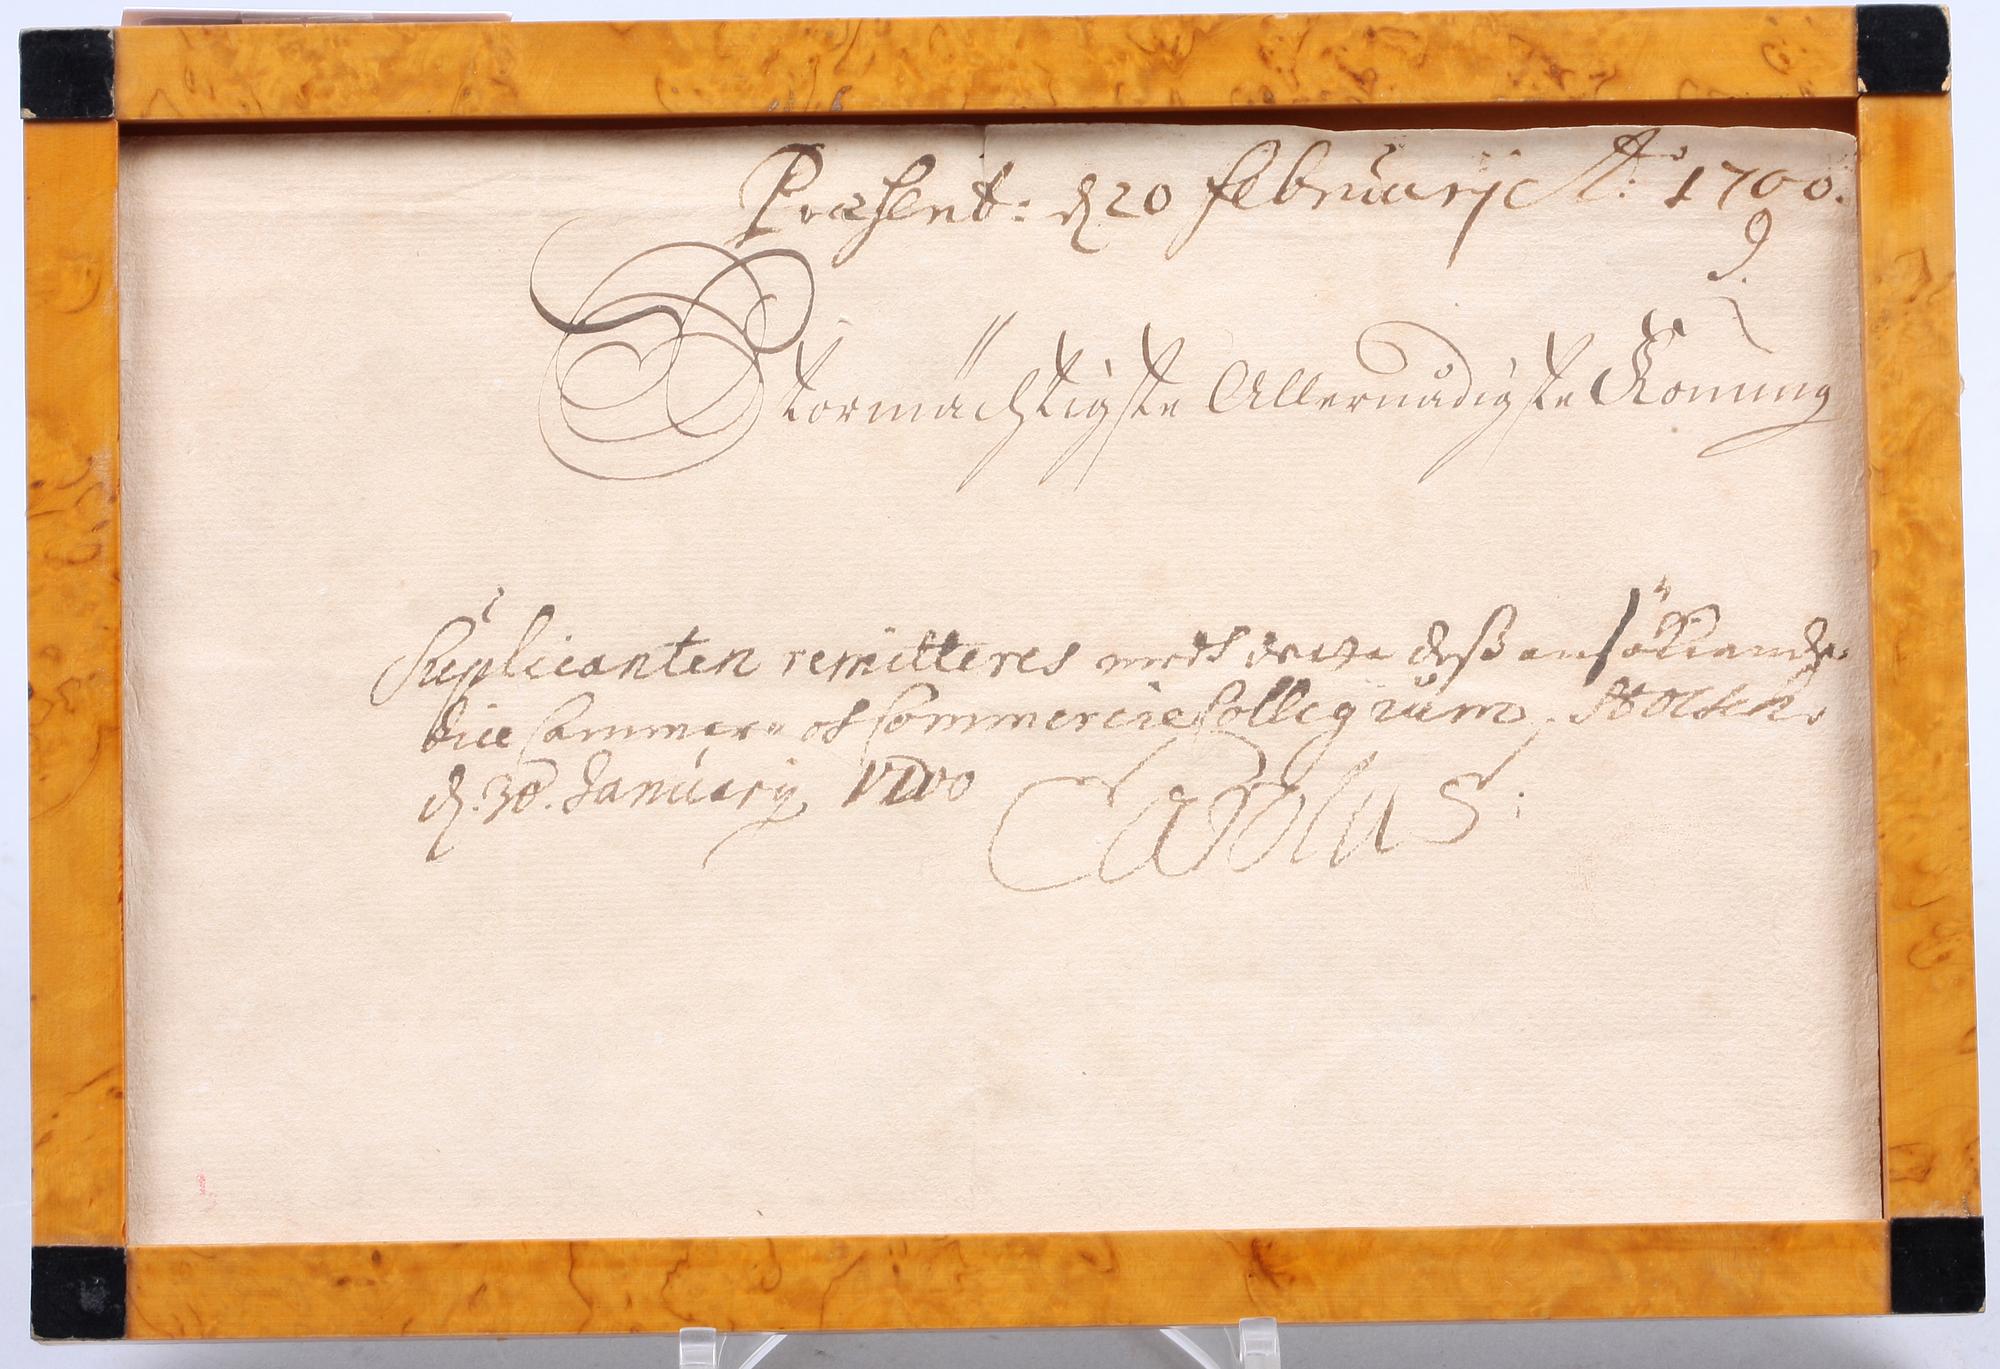 Præsent: d 20 Februarij A:o 1700.
9.
Stormächtigste Allernådigste Konung
Supplicanten remitteres med detta deß ansökiande
till Cammar och Commercie Collegium. Stockh.
d. 30. January 1700 Carolus: